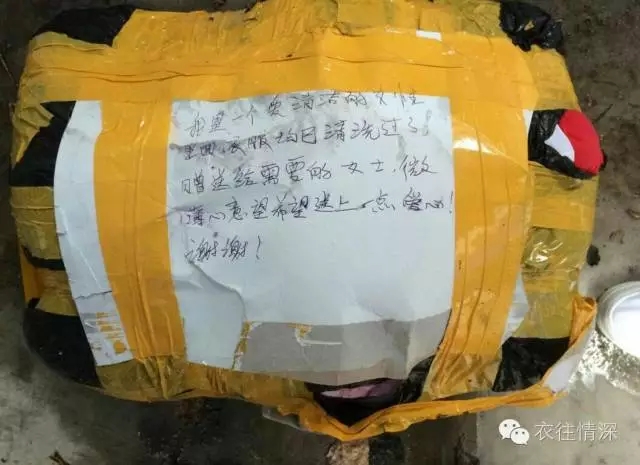 我是一个爱清洁的女性
里面衣服均已清洗过了!
赠送给需要的女士,微
薄心意望希望送上一点爱心!
谢谢!
衣往情深